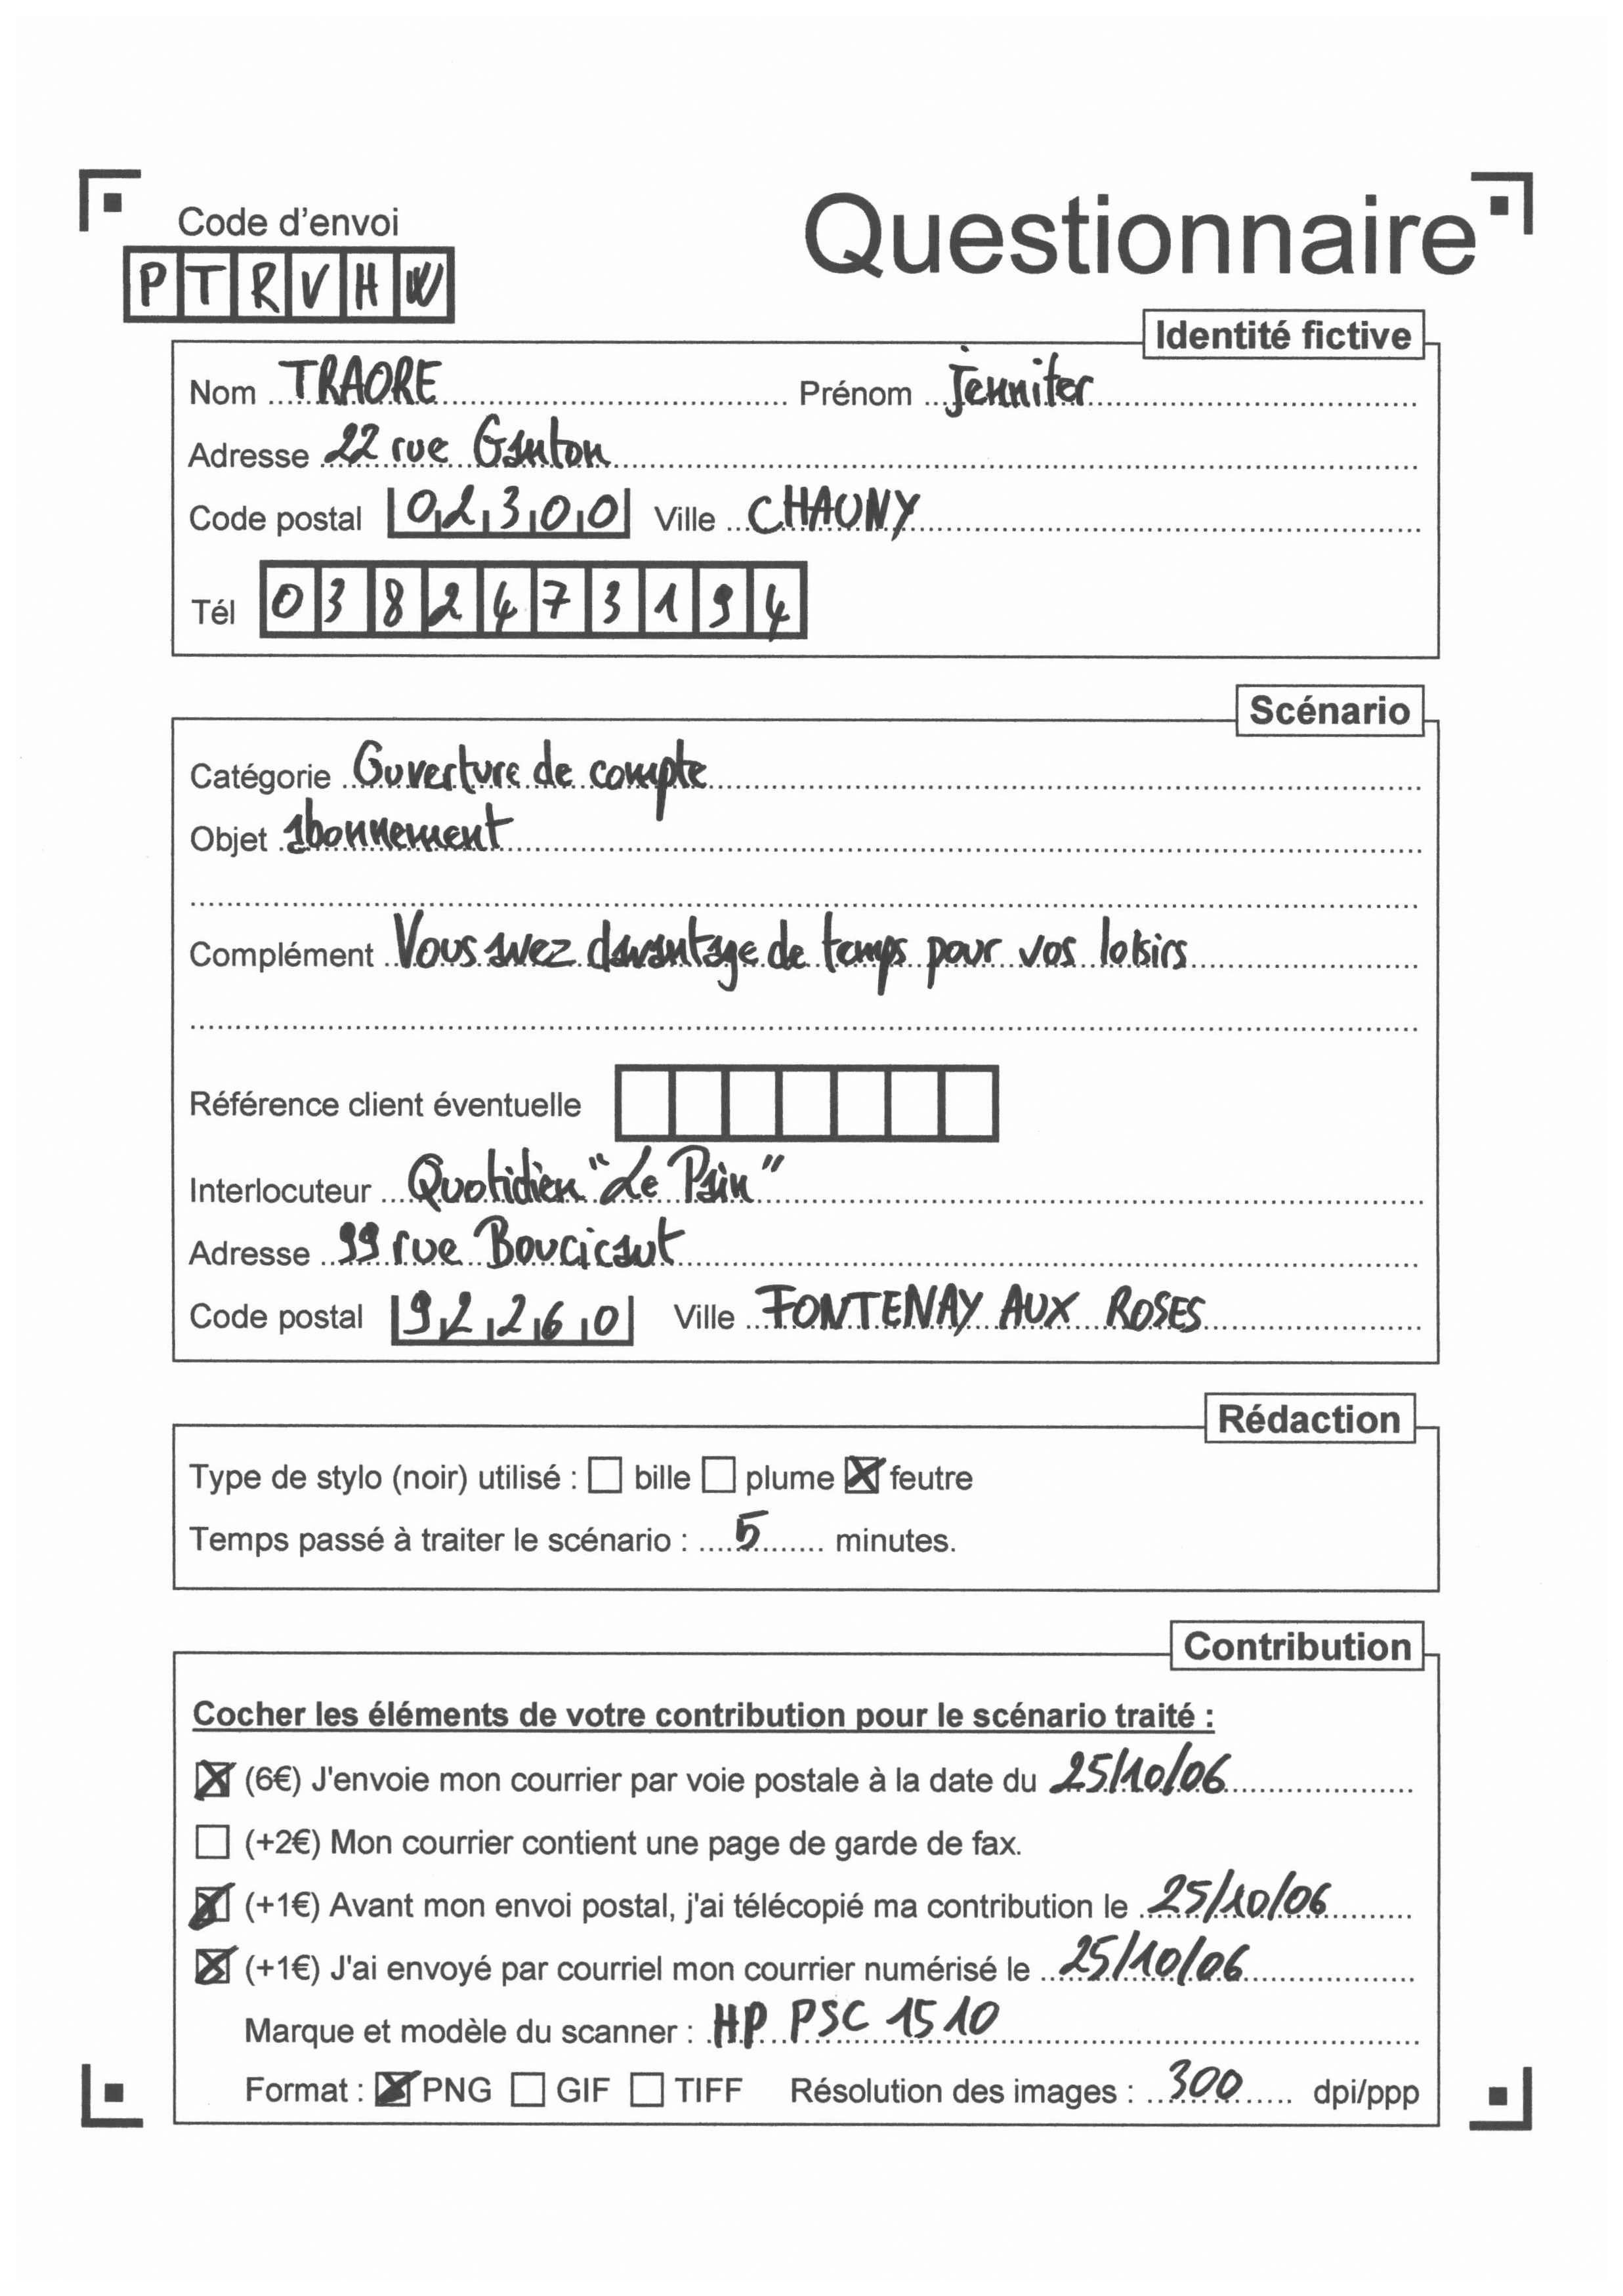 Code d'envoi
Questionnaire
PTRVHW
Identité fictive
Nom TRAORE Prénom Jennifer
Adresse 22 rue Ganton
Code postal 02300 Ville CHAUNY
Tél 0382473194
Scénario
Catégorie Ouverture de compte
Objet abonnement
Complément Vous avez davantage de temps pour vos loisirs
Référence client éventuelle
Interlocuteur Quotidien "Le Pain"
Adresse 99 rue Boucicaut
Code postal 92260 Ville FONTENAY AUX ROSES
Rédaction
Type de stylo (noir) utilisé : ☐ bille ☐ plume ☒ feutre
Temps passé à traiter le scénario : 5 minutes.
Contribution
Cocher les éléments de votre contribution pour le scénario traité :
☒ (6€) J'envoie mon courrier par voie postale à la date du 25/10/06
☐ (+2€) Mon courrier contient une page de garde de fax.
☒ (+1€) Avant mon envoi postal, j'ai télécopié ma contribution le 25/10/06
☒ (+1€) J'ai envoyé par courriel mon courrier numérisé le 25/10/06
Marque et modèle du scanner : HP PSC 1510
Format : ☒ PNG ☐ GIF ☐ TIFF Résolution des images : 300 dpi/ppp